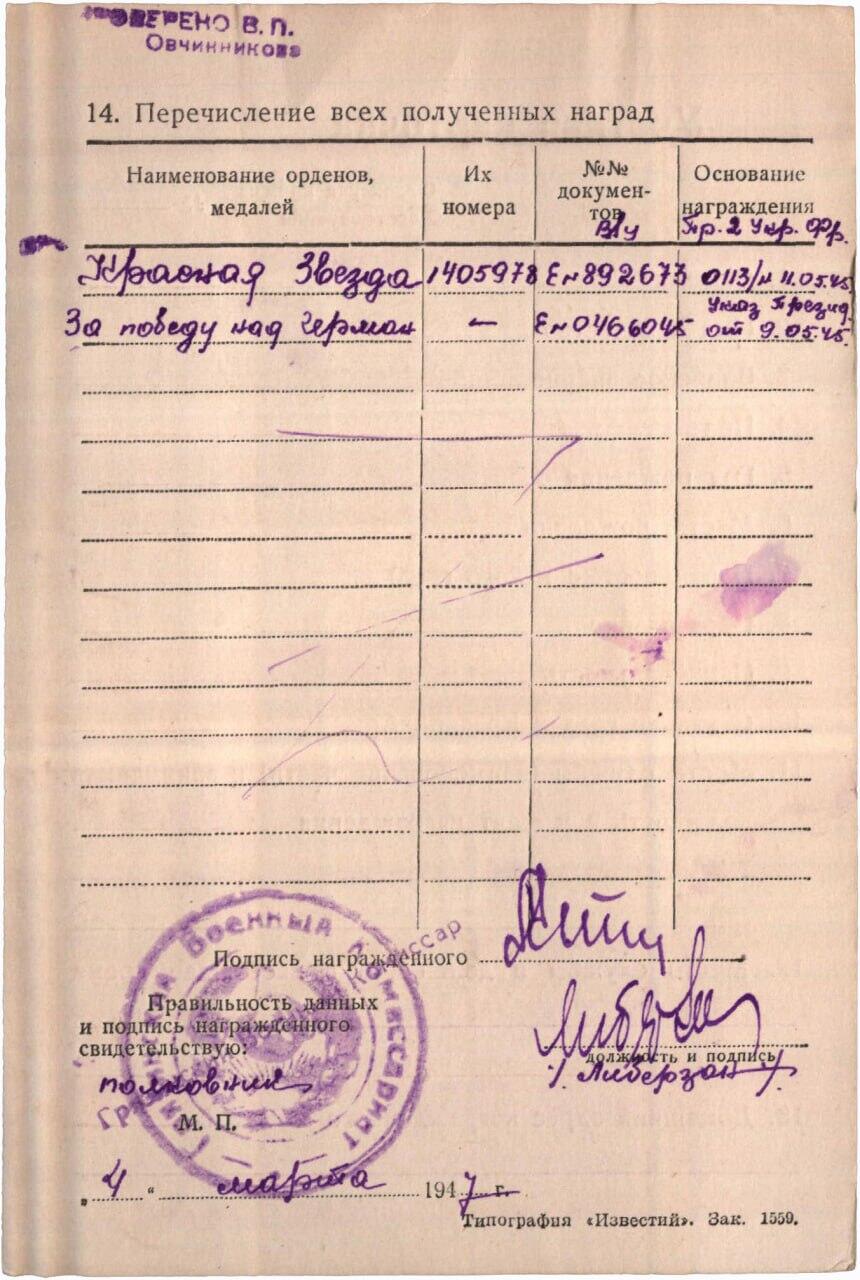 ПРОВЕРЕНО В. П.
Овчинникова
14. Перечисление всех полученных наград
Наименование орденов, медалей
Их номера
№№ документов
Основание награждения
в/у
Пр. 2 Укр. Фр.
Красная Звезда 1405978 Е№892673 0113/н 11.05.45
Указ Презид.
За победу над Герман — Е№0466045 от 9.05.45
Подпись награжденного
Правильность данных
и подпись награжденного
свидетельствую:
должность и подпись
полковник
/ Либерзон /
М. П.
Военный Комиссариат
Комиссар
„ 4 “ марта 1947 г.
Типография «Известий». Зак. 1559.